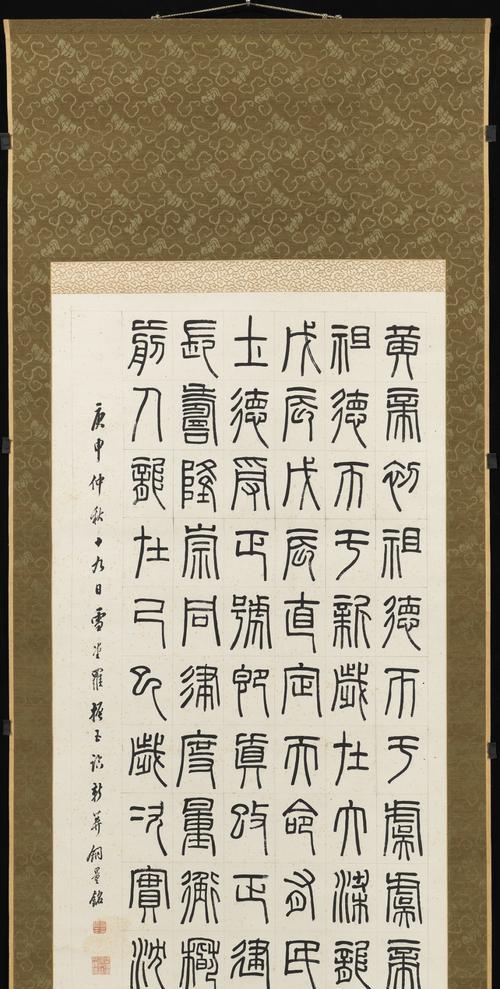 黃帝初祖德帀于虞虞帝
祖德帀于新歲在大梁龍
戊辰戊辰直定天命有民
土德受正號即真改正建
長壽隆崇同律度量衡稽
前人龍在己巳歲次實沈
庚申仲秋十九日雪堂羅振玉臨新莽銅量銘